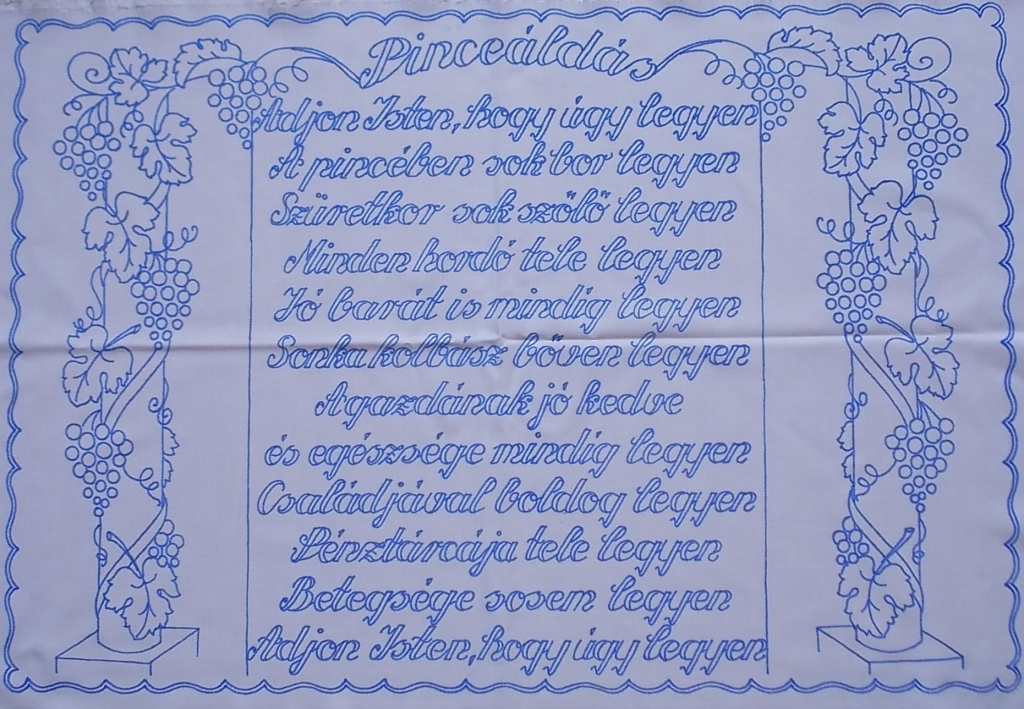 Pinceáldás
Adjon Isten, hogy úgy legyen
A pincében sok bor legyen
Szüretkor sok szőlő legyen
Minden hordó tele legyen
Jó barát is mindig legyen
Sonka kolbász bőven legyen
A gazdának jó kedve
és egészsége mindig legyen
Családjával boldog legyen
Pénztárcája tele legyen
Betegsége sosem legyen
Adjon Isten, hogy úgy legyen